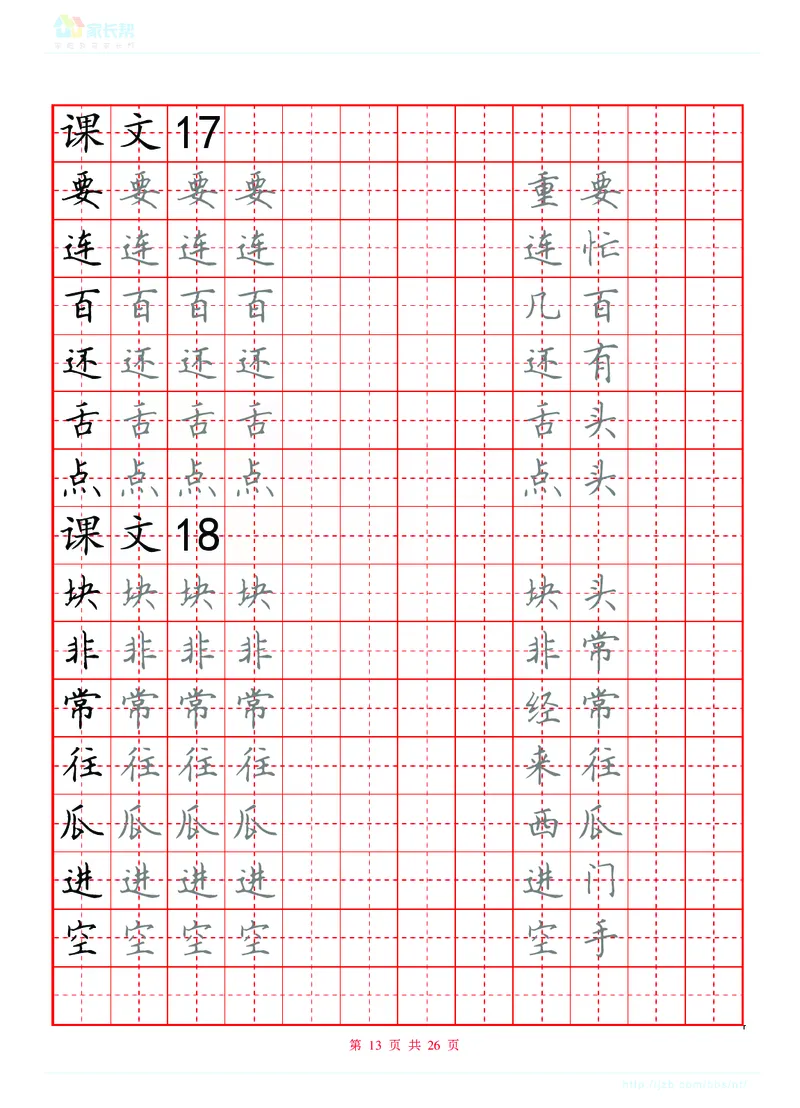 家长帮
课文17
要要要要 重要
连连连连 连忙
百百百百 几百
还还还还 还有
舌舌舌舌 舌头
点点点点 点头
课文18
块块块块 块头
非非非非 非常
常常常常 经常
往往往往 来往
瓜瓜瓜瓜 西瓜
进进进进 进门
空空空空 空手
第 13 页 共 26 页